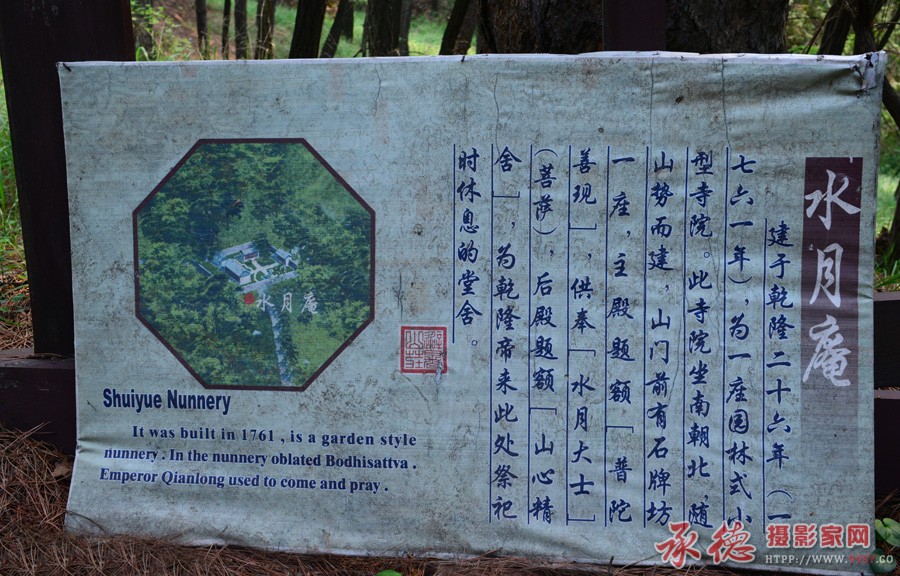 水月庵
建于乾隆二十六年（一
七六一年），为一座园林式小
型寺院。此寺院坐南朝北，随
山势而建，山门前有石牌坊
一座，主殿题额「普陀
善现」，供奉「水月大士」
（菩萨），后殿题额「山心精
舍」，为乾隆帝来此处祭祀
时休息的堂舍。
水月庵
Shuiyue Nunnery
It was built in 1761 , is a garden style
nunnery . In the nunnery oblated Bodhisattva .
Emperor Qianlong used to come and pray .
承德摄影家网